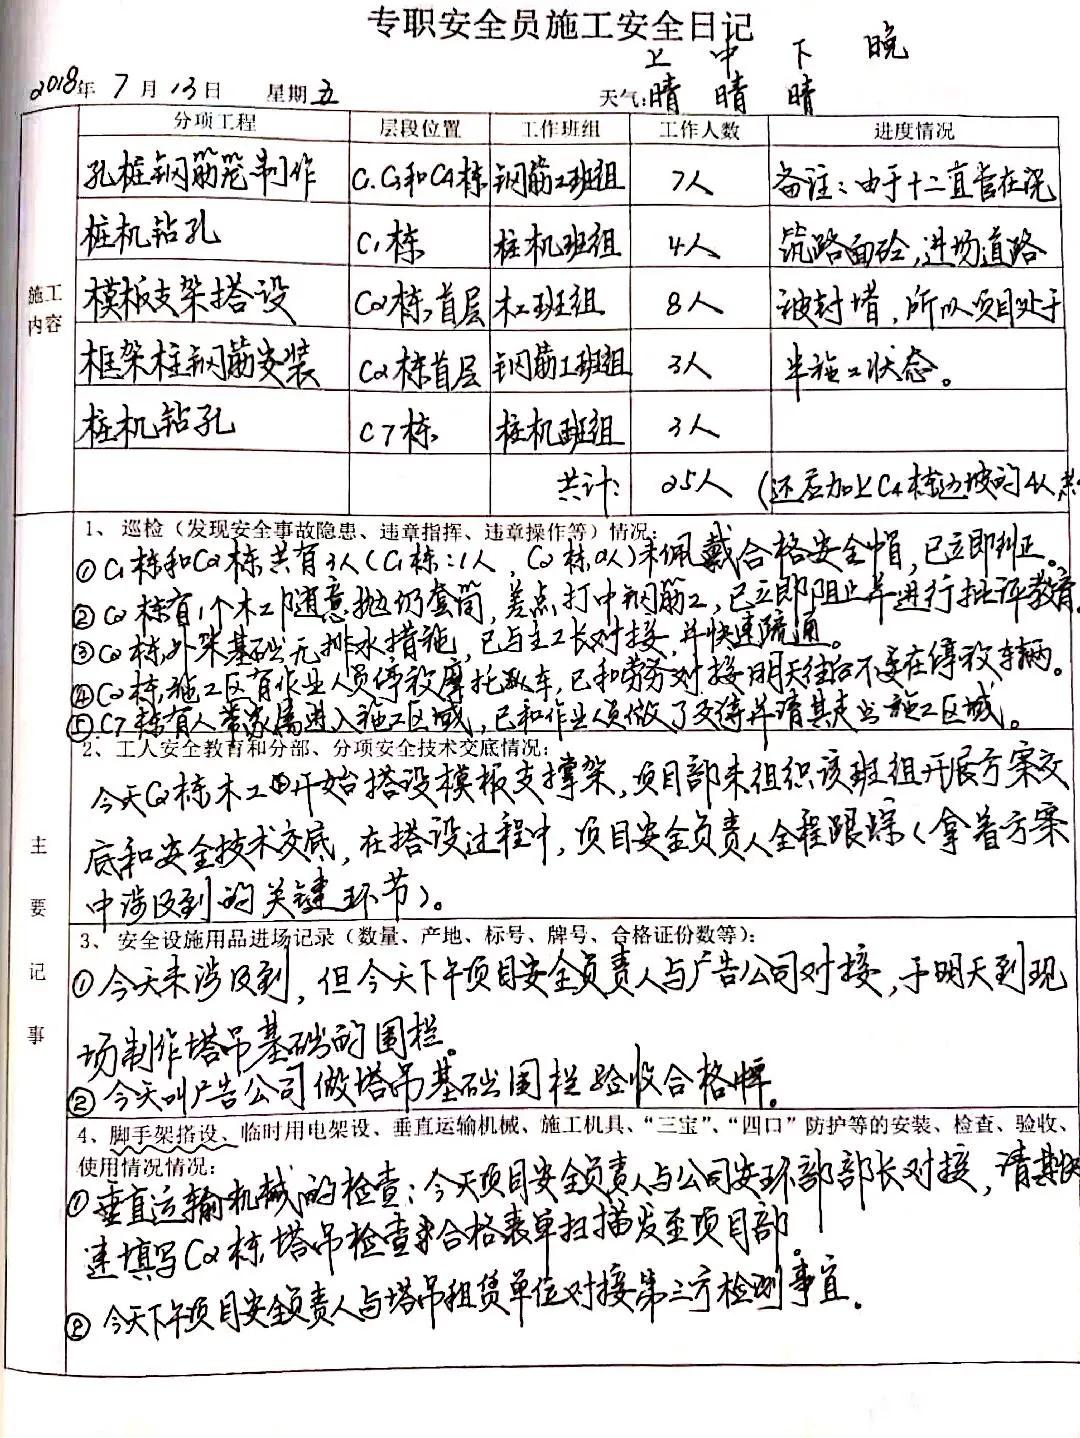 专职安全员施工安全日记
上 中 下 晚
2018年 7月 13日 星期五 天气:晴 晴 晴
分项工程 层段位置 工作班组 工作人数 进度情况
孔桩钢筋笼制作 C1.C3和C4栋 钢筋工班组 7人 备注:由于十二直管在浇
桩机钻孔 C1栋 桩机班组 4人 筑路面砼,进场道路
施工
内容
模板支架搭设 C2栋,首层 木工班组 8人 被封堵,所以项目处于
框架柱钢筋安装 C2栋首层 钢筋工班组 3人 半施工状态。
桩机钻孔 C7栋 桩机班组 3人
共计: 25人 (还应加上C4栋边坡的4人
1、巡检(发现安全事故隐患、违章指挥、违章操作等)情况:
①C1栋和C2栋共有3人(C1栋:1人,C2栋2人)未佩戴合格安全帽,已立即纠正。
②C2栋有1个木工随意抛扔套筒,差点打中钢筋工,已立即阻止并进行批评教育
③C2栋,外架基础无排水措施,已与主工长对接,并快速疏通。
④C2栋,施工区有作业人员停放摩托车,已和劳务对接明天往后不要在停放车辆。
⑤C7栋有人带家属进入施工区域,已和作业人员做了交待并请其走出施工区域。
2、工人安全教育和分部、分项安全技术交底情况:
今天C2栋木工开始搭设模板支撑架,项目部未组织该班组开展方案交
底和安全技术交底,在搭设过程中,项目安全负责人全程跟踪(拿着方案
中涉及到的关键环节)。
主要记事
3、安全设施用品进场记录(数量、产地、标号、牌号、合格证份数等):
①今天未涉及到,但今天下午项目安全负责人与广告公司对接,于明天到现
场制作塔吊基础的围栏。
②今天叫广告公司做塔吊基础围栏验收合格牌。
4、脚手架搭设、临时用电架设、垂直运输机械、施工机具、“三宝”、“四口”防护等的安装、检查、验收、
使用情况情况:
①垂直运输机械的检查:今天项目安全负责人与公司安环部部长对接,请其快
速填写C2栋,塔吊检查合格表单扫描发至项目部。
②今天下午项目安全负责人与塔吊租赁单位对接第三方检测事宜。